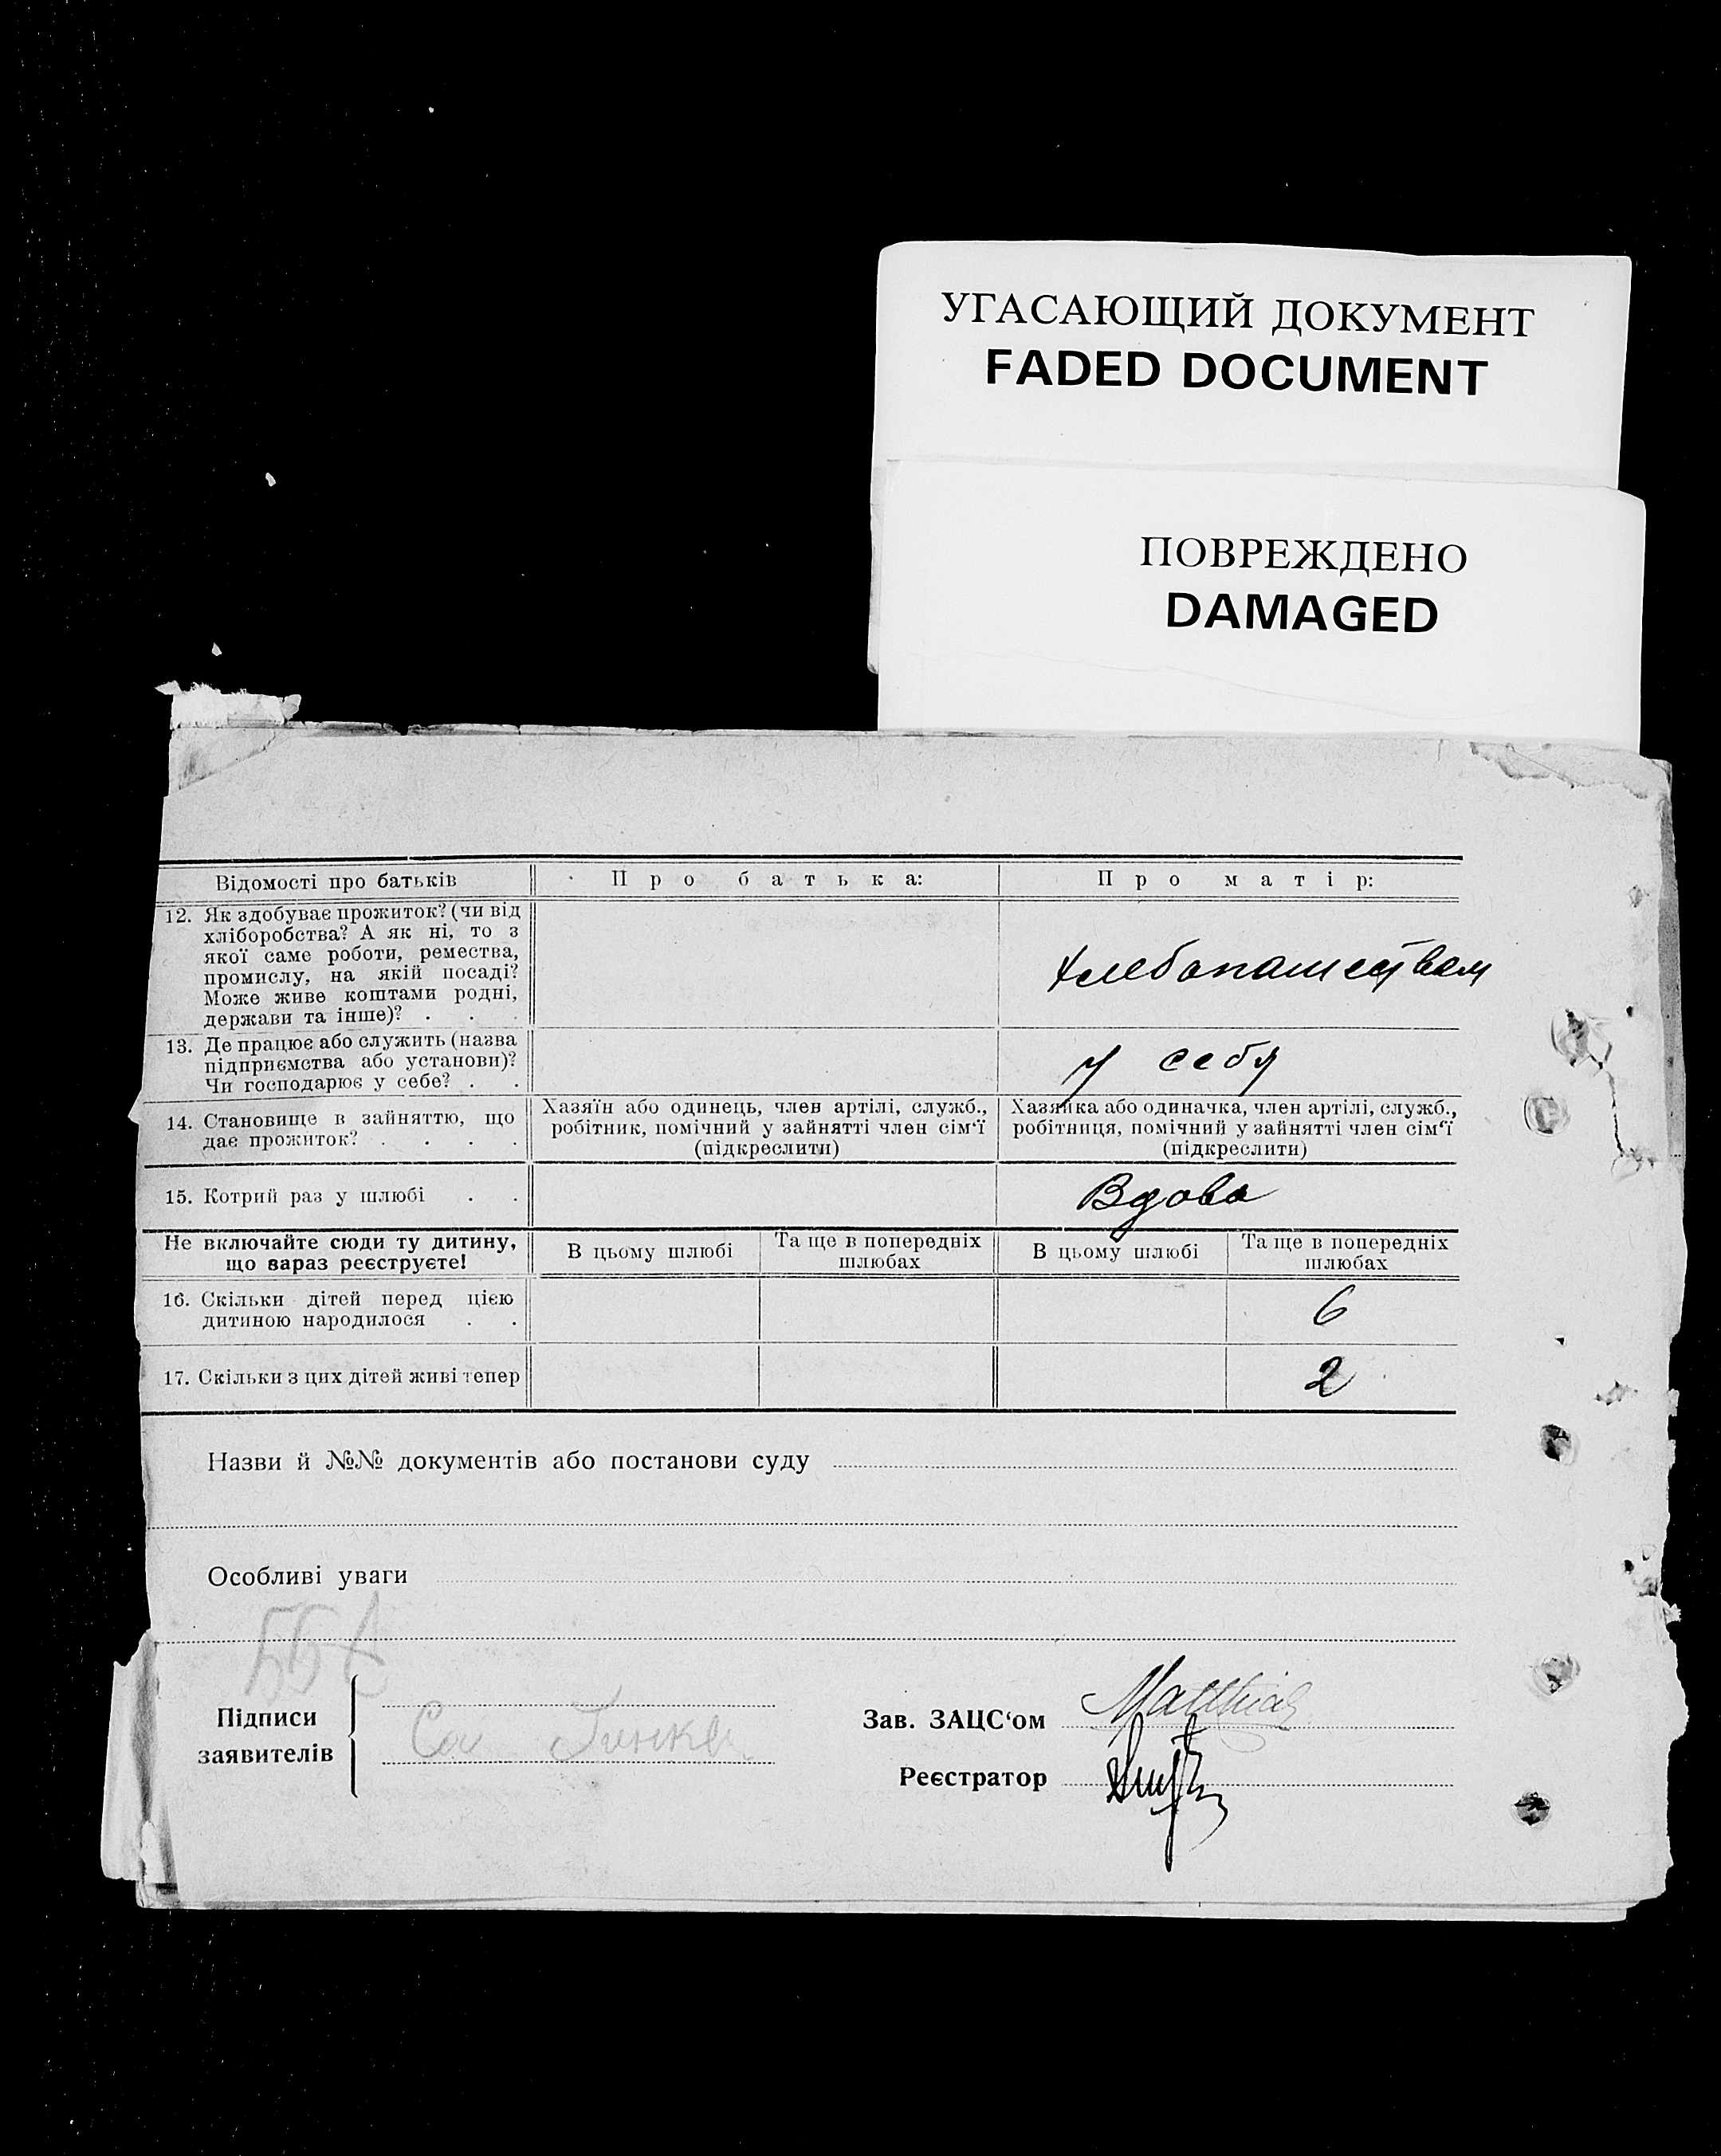 УГАСАЮЩИЙ ДОКУМЕНТ
FADED DOCUMENT
ПОВРЕЖДЕНО
DAMAGED
Відомості про батьків
Про батька:
Про матір:
12. Як здобуває прожиток? (чи від
хліборобства? А як ні, то з
якої саме роботи, ремества,
промислу, на якій посаді?
Може живе коштами родні,
держави та інше)? . . .
хлебопашеством
13. Де працює або служить (назва
підприємства або установи)?
Чи господарює у себе? . .
у себя
14. Становище в зайняттю, що
дає прожиток? . . . .
Хазяїн або одинець, член артілі, служб.,
робітник, помічний у зайнятті член сім'ї
(підкреслити)
Хазяйка або одиначка, член артілі, служб.,
робітниця, помічний у зайнятті член сім'ї
(підкреслити)
15. Котрий раз у шлюбі . .
Вдова
Не включайте сюди ту дитину,
що вараз реєструєте!
В цьому шлюбі
Та ще в попередніх
шлюбах
В цьому шлюбі
Та ще в попередніх
шлюбах
16. Скільки дітей перед цією
дитиною народилося . .
6
17. Скільки з цих дітей живі тепер
2
Назви й №№ документів або постанови суду
Особливі уваги
Підписи
заявителів
Зав. ЗАЦС'ом
Matthias
Реєстратор